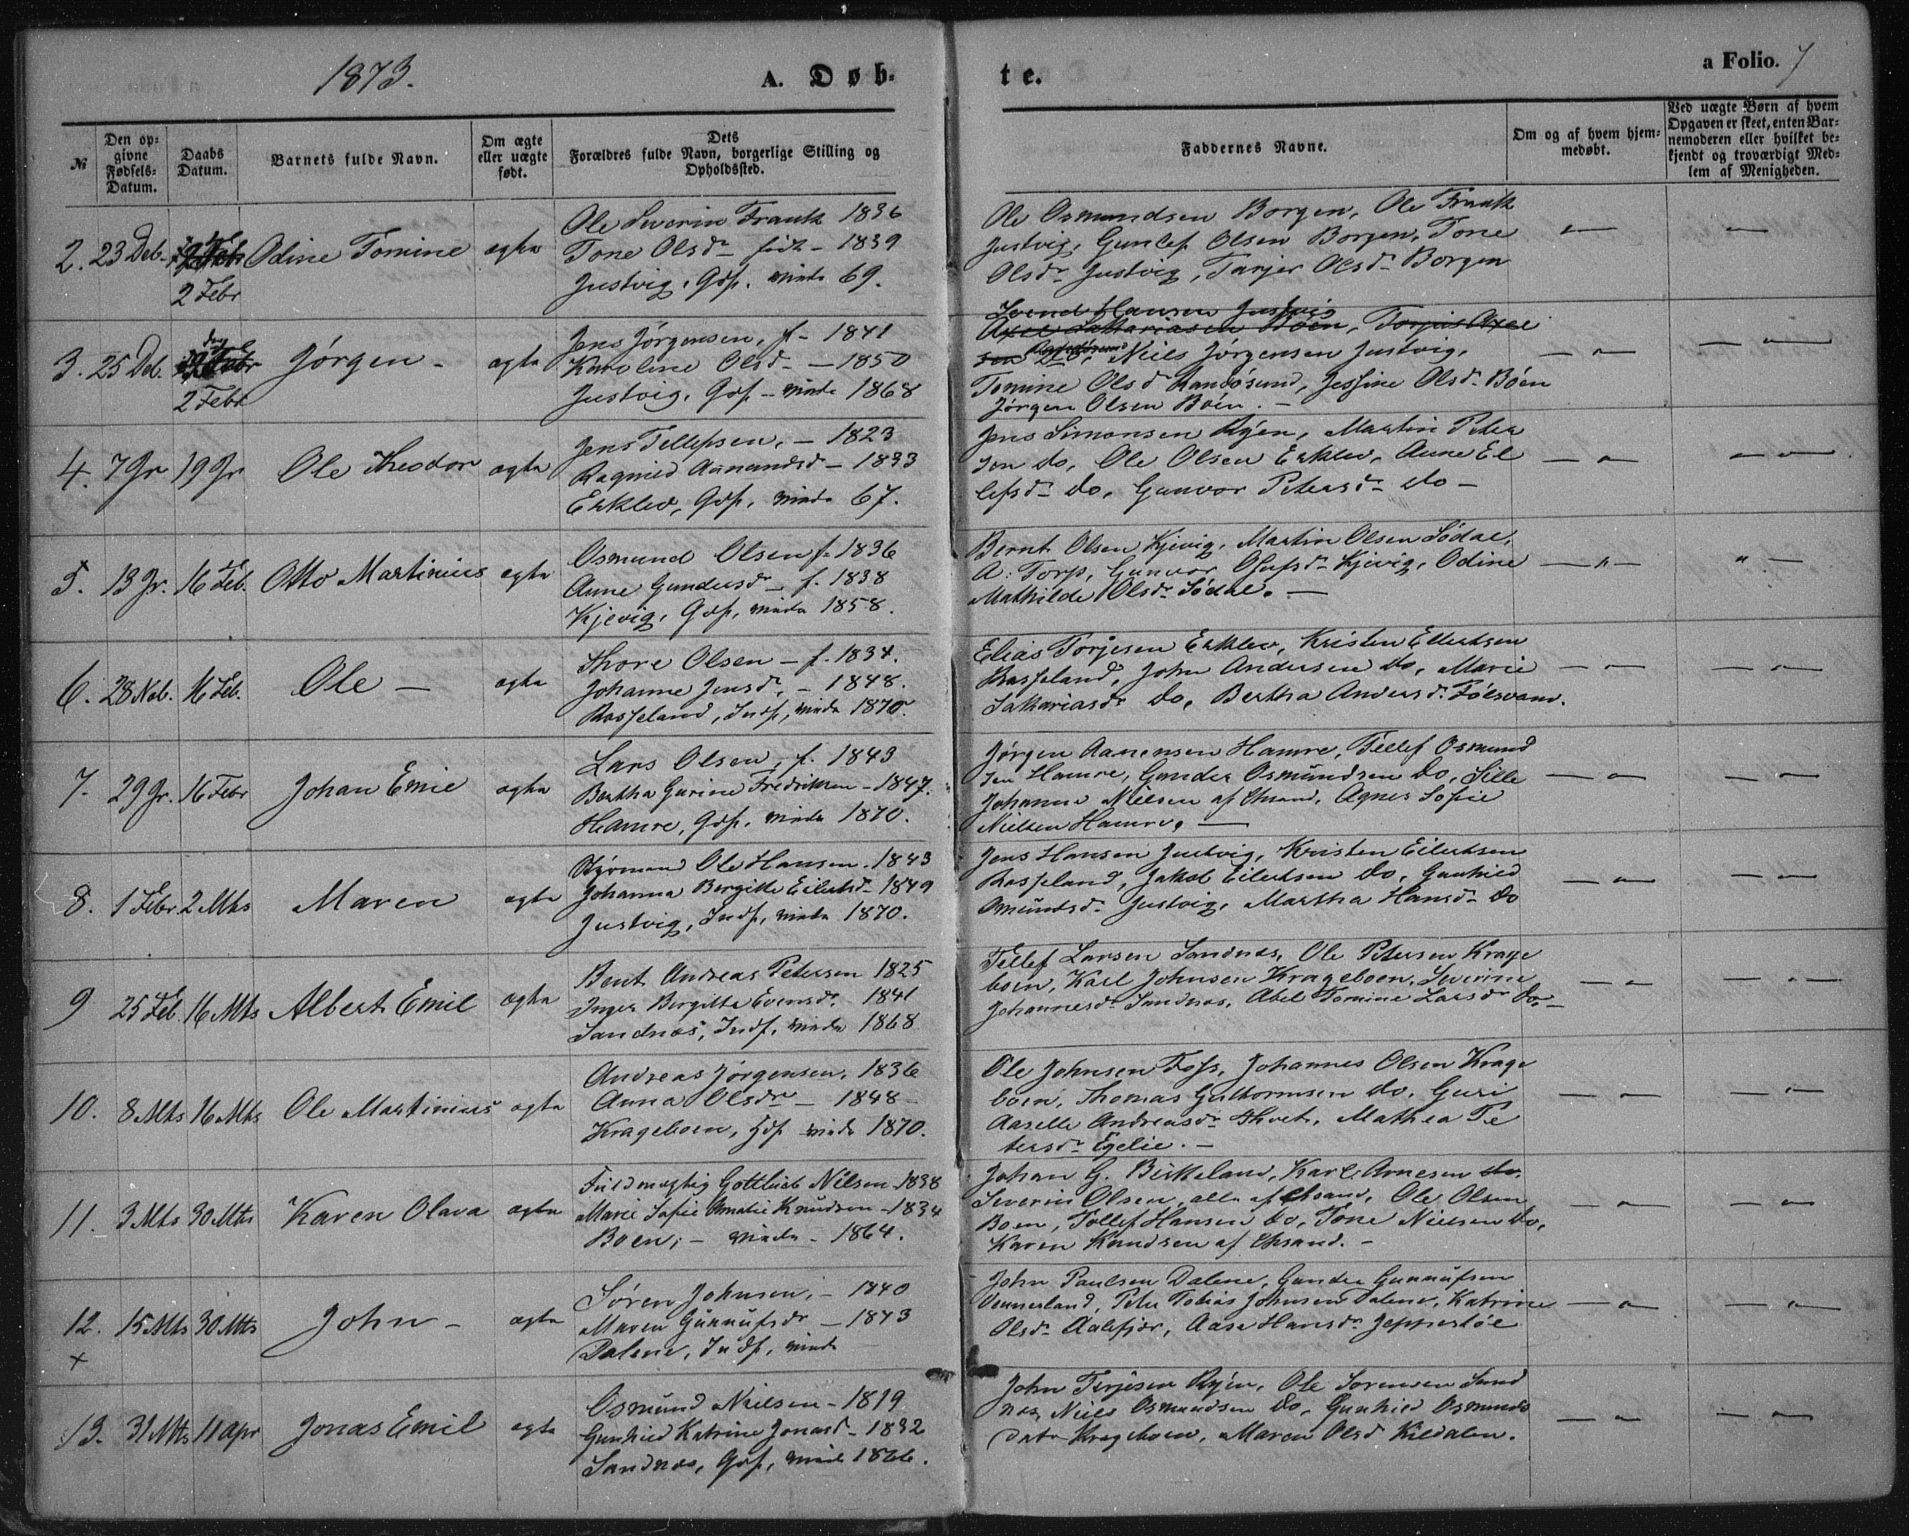 1873.
A. Døb-
te.
a Folio. 7
№
Den op-
givne
Fødsels-
Datum.
Daabs
Datum.
Barnets fulde Navn.
Om ægte
eller uægte
født.
Dets
Forældres fulde Navn, borgerlige Stilling og
Opholdssted.
Faddernes Navne.
Om og af hvem hjem-
medøbt.
Ved uægte Børn af hvem
Opgaven er skeet, enten Bar-
nemoderen eller hvilket be-
kjendt og troværdigt Med-
lem af Menigheden.
2. 23 Deb. 2 Febr Odine Tomine ægte
Ole Severin Frank 1836
Tone Olsdr 1839
Justvig, Gdf. viede 69.
Ole Osmundsen Borgen, Ole Frank
Justvig, Gunlef Olsen Borgen, Tone
Olsdr Justvig, Tarjer Olsdr Borgen
3. 25 Deb. 2 Febr Jørgen - ægte
Jens Jørgensen, f - 1841
Karoline Olsd - 1850
Justvig, Gdf - viede 1868
Svend Hansen Justvig
Niels Jørgensen Justvig,
Tomine Olsd Randøsund, Jessine Olsdr Boen
Jørgen Olsen Boen. -
4. 7 Jr 19 Jr Ole Theodor ægte
Jens Tellefsen, - 1823
Ragnild Aanandsd - 1833
Eeklev, Gdf, viede 67.
Jens Simonsen Ryen, Martin Peter
sen do, Ole Olsen Eeklev, Anne El
lefsdr do, Gunvor Petersdr do -
5. 13 Jr. 16 Feb. Otto Martinius ægte
Osmund Olsen f. 1836
Anne Gundersdr - f. 1838
Kjevig, Gdf, viede 1858.
Bernt Olsen Kjevig, Martin Olsen Sødal,
A. Torp, Gunvor Olefsdr Kjevig, Odine
Mathilde Olsdr Sødal. -
6. 16 Feb. Ole - ægte
Thore Olsen - f. 1834.
Johanne Jensd, - 1848.
Rosseland, Indf, viede 1870.
Elias Torjesen Eeklev, Kristen Eilertsen
Rosseland, John Andersen do, Marie
Sakariasdr do, Bertha Andersdr Følsvand.
7. 29 Jr. 16 Febr Johan Emil ægte
Lars Olsen, f. 1843
Bertha Gurine Fredriksen - 1847.
Hamre, Gdf. viede 1870.
Jørgen Aanensen Hamre, Tellef Osmund
sen Hamre, Gunder Osmundsen do, Sille
Johanna Nielsen af Chsand, Agnes Sofie
Nielsen Hamre. -
8. 1 Febr 2 Mts Maren ægte
Styrmand Ole Hansen. 1843
Johanna Bergitte Eilertsd - 1849
Justvig, Indf, viede 1870.
Jens Hansen Justvig, Kristen Eilertsen
Rosseland, Jakob Eilertsen do, Gunhild
Osmundsdr Justvig, Martha Hansdr do
9 25 Feb. 16 Mts Albert Emil ægte
Bent Andreas Petersen 1825
Inger Birgitte Evensdr 1841
Sandnæs, Indf, viede 1868
Tellef Larsen Sandnæs, Ole Petersen Krage
boen, Karl Johnsen Krageboen, Severine
Johannesdr Sandnæs, Abel Tomine Larsdr do. -
10. 8 Mts 16 Mts Ole Martinius ægte
Andreas Jørgensen, 1836
Anna Olsdr - 1848 -
Krageboen, Gdf viede 1870.
Ole Johnsen Foss, Johannes Olsen Krage
boen, Thomas Guttormsen do, Guri
Aaselle Andreasdr Thveit, Mathea Pe
tersdr Egelie. -
11. 3 Mts 30 Mts Karen Olava ægte
Fuldmægtig Gottlieb Nilsen 1838
Marie Sofie Amalie Knudsen - 1834
Boen, - viede - 1864.
Johan G. Birkeland, Karl Arnesen do.
Severin Olsen alle af Chsand, Ole Olsen
Boen, Tellef Hansen do, Tone Nielsen do,
Karen Knudsen af Chsand. -
12. 15 Mts 30 Mts John - ægte
+
Søren Johnsen, - 1840
Maren Gunnufsdr - 1843
Dalene, Indf, viede
John Paulsen Dalene, Gunder Gunnufsen
Vennerland, Peter Tobias Johnsen Dalene, Katrine
Olsdr Aalefjær, Aase Hansdr Jeppestøl
13. 31 Mts 11 Apr Jonas Emil ægte
Osmund Nielsen - 1819
Gunhild Katrine Jonasd - 1832
Sandnæs, Gdf, viede 1866.
John Terjesen Ryen, Ole Sorensen Sand
næs, Niels Osmundsen do, Gunhild Osmunds
Datr Krageboen, Maren Olsd Kildalen.